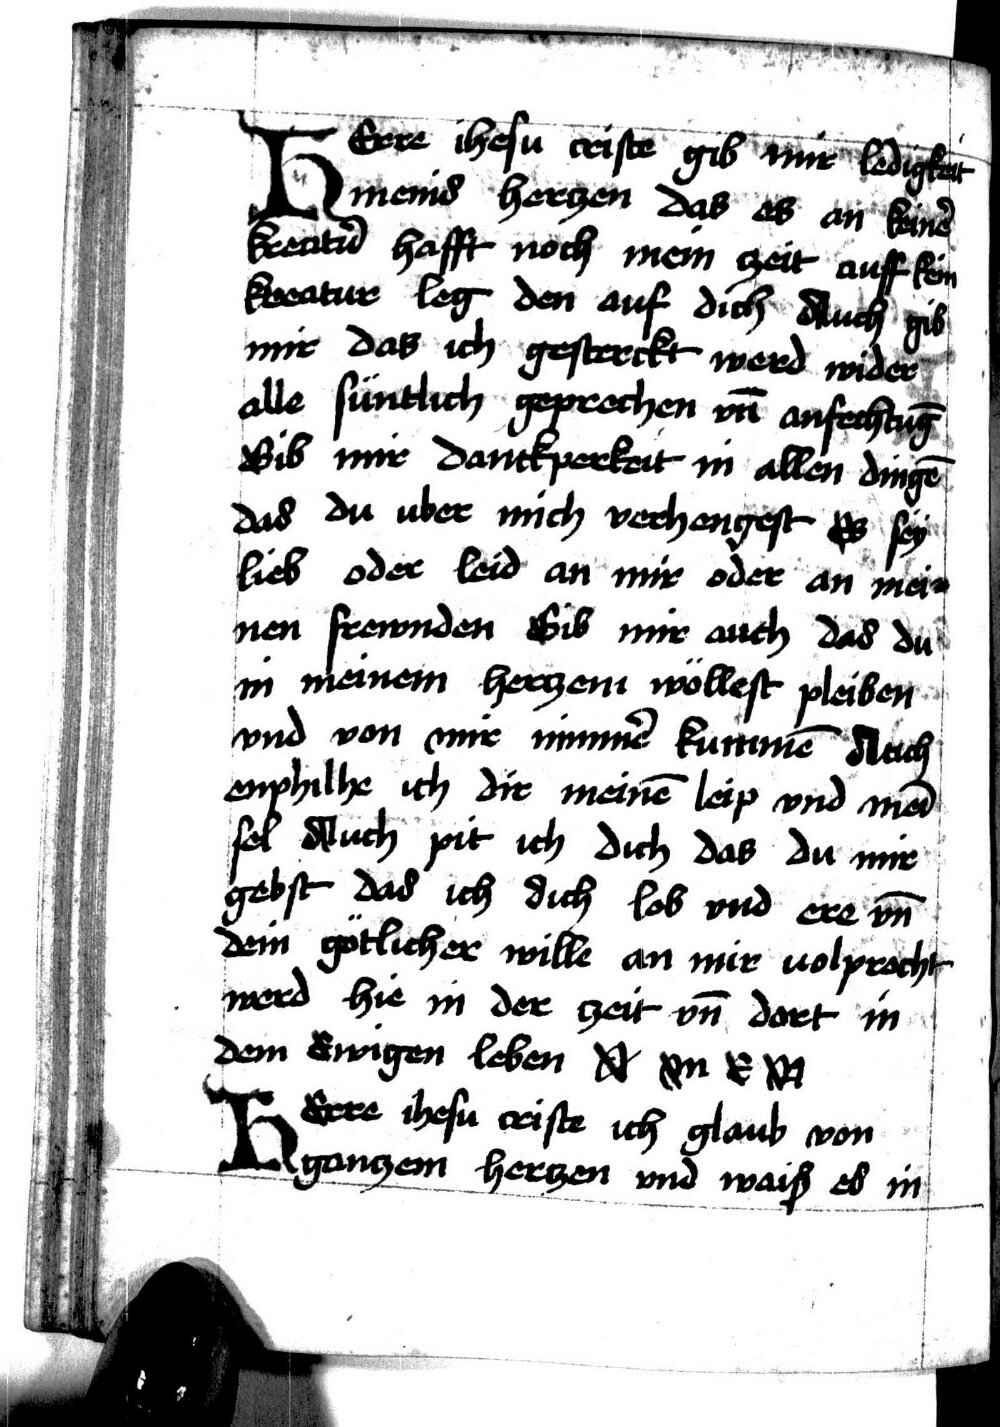 HErre ihesu criste gib mir ledigkeit
meins hertzen das es an keinē
kreatur̄ hafft noch mein zeit auff kein
kreatur leg den auf dich Auch gib
mir das ich gesterckt werd wider
alle süntlich geprechen vn̄ anfechtūg
Gib mir danckperkeit in allen dingē
das du uber mich verhengest Es sey
lieb oder leid an mir oder an mei-
nen frewnden Gib mir auch das du
in meinem hertzem wöllest pleiben
vnd von mir nimmē kummē Auch
enphilhe ich dir meinē leip vnd mei
sel Auch pit ich dich das du mir
gebst das ich dich lob vnd ere vn̄
dein götlicher wille an mir uolprocht
werd hie in der zeit vn̄ dort in
dem Ewigen leben A M E N
HErre ihesu criste ich glaub von
gantzem hertzen vnd waiß es in